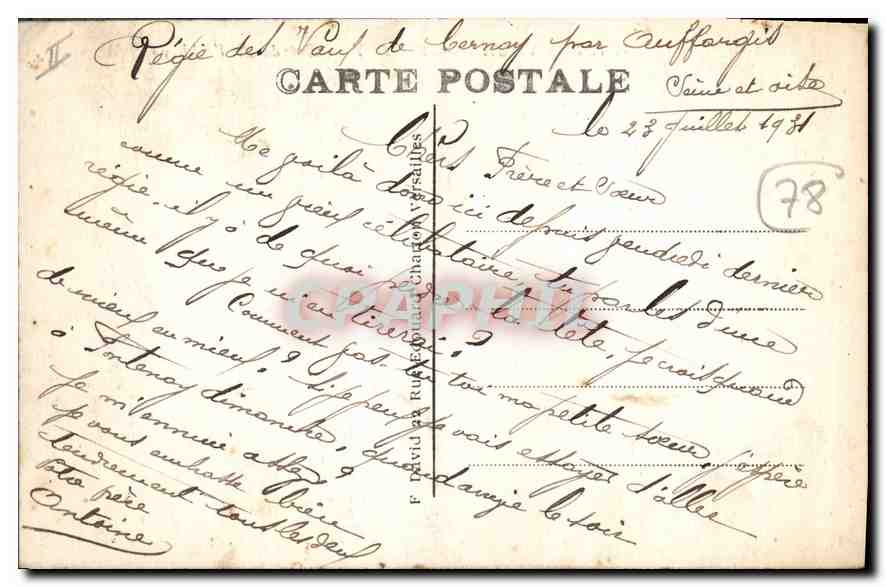 II
Régie des Vaux de Cernay par Auffargis
CARTE POSTALE
Seine et oise
le 23 Juillet 1931
78
Chers Frère et Sœur
Me voilà donc ici depuis vendredi dernier
comme un vieux célibataire. Tu parles d'une
régie, il y a de quoi perdre la tête, je crois quand
même que je m'en tirerai,
Comment vas-tu toi ma petite sœur j'espère
de mieux au mieux, si je peux je vais essayer d'aller
à Fontenay dimanche, quand le soir
je m'ennuie assez
je vous embrasse bien
tendrement tous les deux
Votre frère
Antoine
F David 22 Rue Edouard Charton Versailles
CPAPHIL